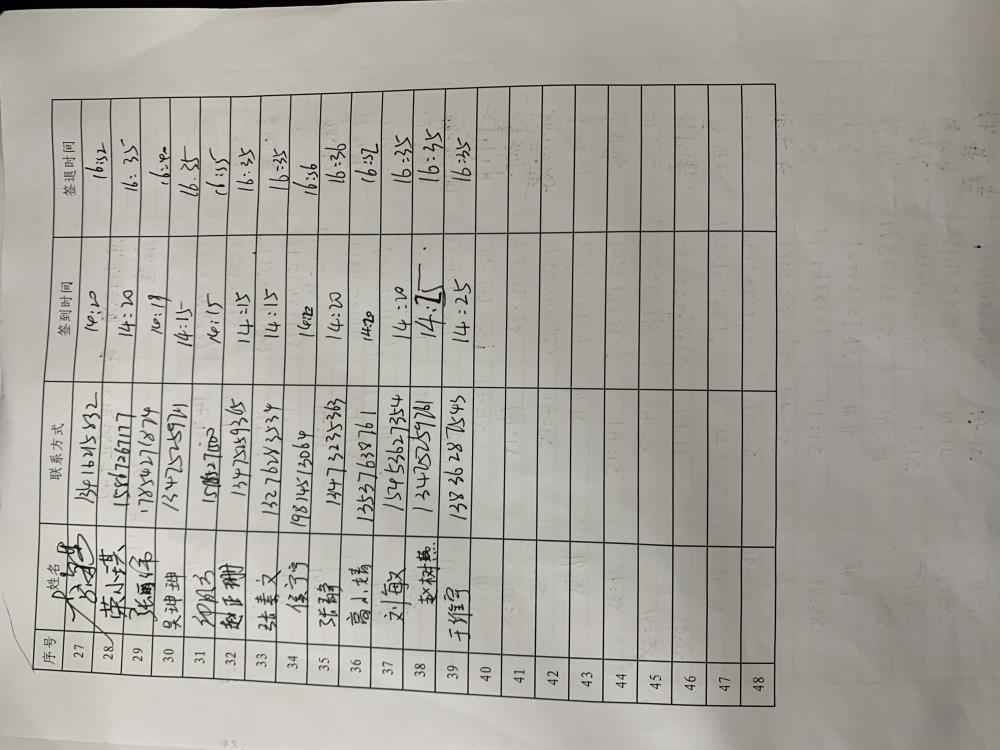 序号 姓名 联系方式 签到时间 签退时间
27 13416215832 14:20 16:52
28 荣小琪 15867267117 14:20 16:35
29 张丽伟 17854271874 14:19 16:40
30 吴珅珅 13475259721 14:15 16:35
31 14:15 16:35
32 赵正珊 13475259365 14:15 16:35
33 张素文 13276283534 14:15 16:35
34 侯宁宁 19814513064 14:22 16:36
35 张静 13473235363 14:20 16:36
36 高小靖 13537638761 14:20 16:52
37 刘敏 15453627354 14:20 16:35
38 赵树燕 13475259761 14:25 16:35
39 于维宁 13836287543 14:25 16:35
40
41
42
43
44
45
46
47
48